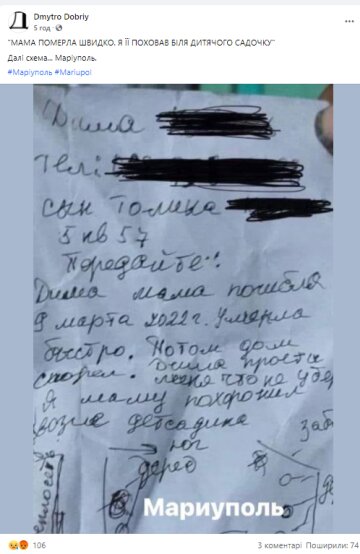 Dmytro Dobriy
5 год
"МАМА ПОМЕРЛА ШВИДКО. Я ЇЇ ПОХОВАВ БІЛЯ ДИТЯЧОГО САДОЧКУ"
Далі схема... Маріуполь.
#Маріуполь #Mariupol
Дима
Тел
сын Толика
5 кв 57
Передайте!
Дима мама погибла
9 марта 2022г. Умерла
быстро. Потом дом
сгорел. Дима прости
меня что не убе
Я маму похоронил
возле детсадика
юг
дерев
Мариуполь
106
3 коментарі Поширили: 74